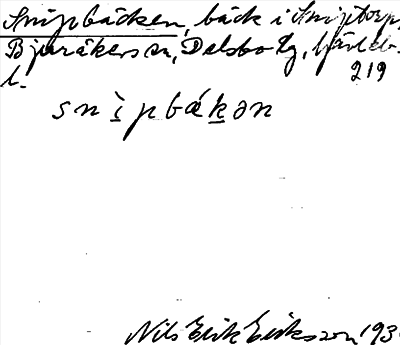 Snipbäcken, bäck i Sniptorp,
Bjuråkers sn, Delsbo tg, Gävleb.
219
l.
snìpbákən
Nils Erik Eriksson 193